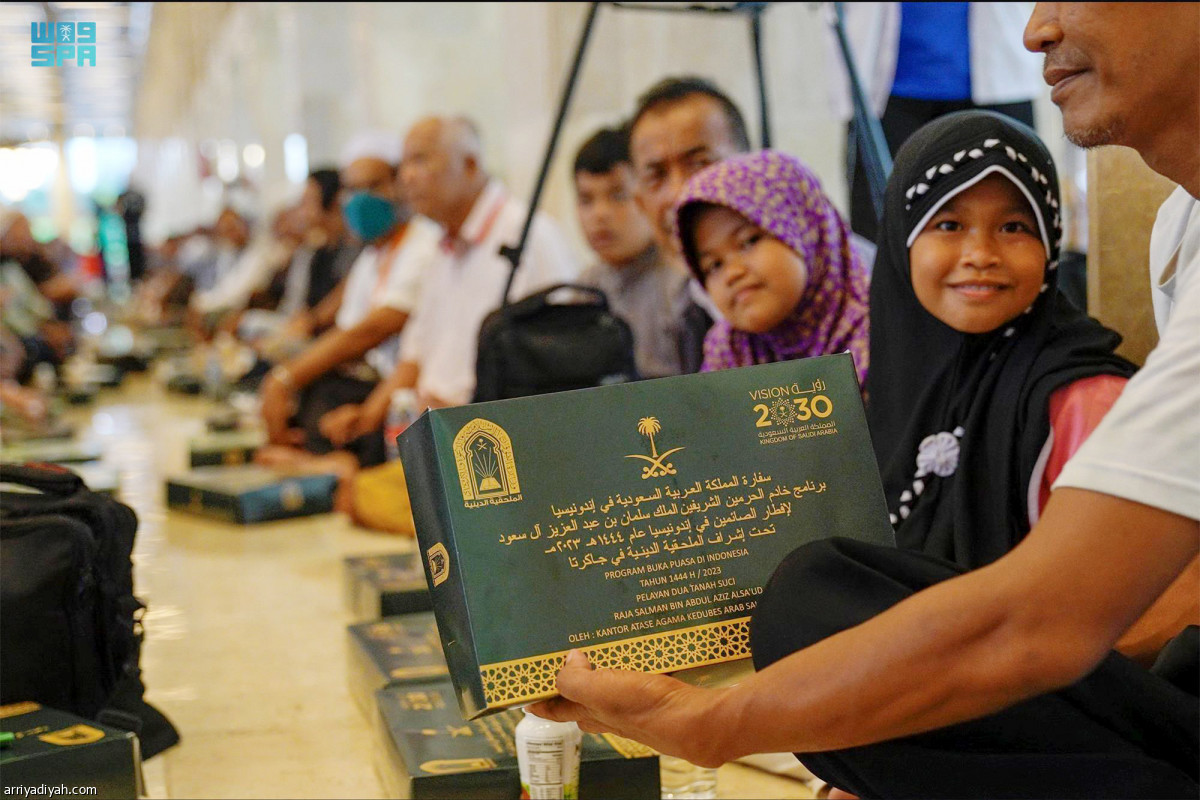 WAS
SPA
VISION رؤية
2030
المملكة العربية السعودية
KINGDOM OF SAUDI ARABIA
الملحقية الدينية
سفارة المملكة العربية السعودية في إندونيسيا
برنامج خادم الحرمين الشريفين الملك سلمان بن عبد العزيز آل سعود
لإفطار الصائمين في إندونيسيا عام ١٤٤٤هـ ٢٠٢٣مـ
تحت إشراف الملحقية الدينية في جاكرتا
PROGRAM BUKA PUASA DI INDONESIA
TAHUN 1444 H / 2023
PELAYAN DUA TANAH SUCI
RAJA SALMAN BIN ABDUL AZIZ ALSA'UD
OLEH : KANTOR ATASE AGAMA KEDUBES ARAB SA
arriyadiyah.com